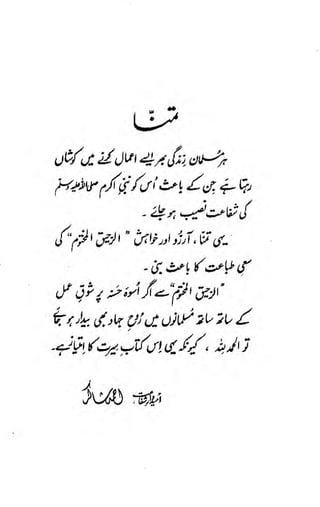 تمنّا
ہر مسلمان زندگی بھر ایسے اعمال کرنے میں کوشاں
رہتا ہے جن کے باعث اُس کو نبی اکرم صلی اللہ علیہ وسلم
کی شفاعت نصیب ہو جائے۔
یہی تمنا، آرزو اور خواہش "الرحیق المختوم" کی
سعیِ طباعت کا باعث بنی۔
"الرحیق المختوم" سے اگر اُسوۂ حسنہ پر شوقِ عمل
کے ساتھ ساتھ مسلمانوں میں رُوحِ جہاد بھی بیدار ہو جائے
تو الحمد للہ، کیونکہ یہی اِس کتابِ سیرت کا امتیاز ہے۔
امیدوارِ شفاعت احمد شاکر